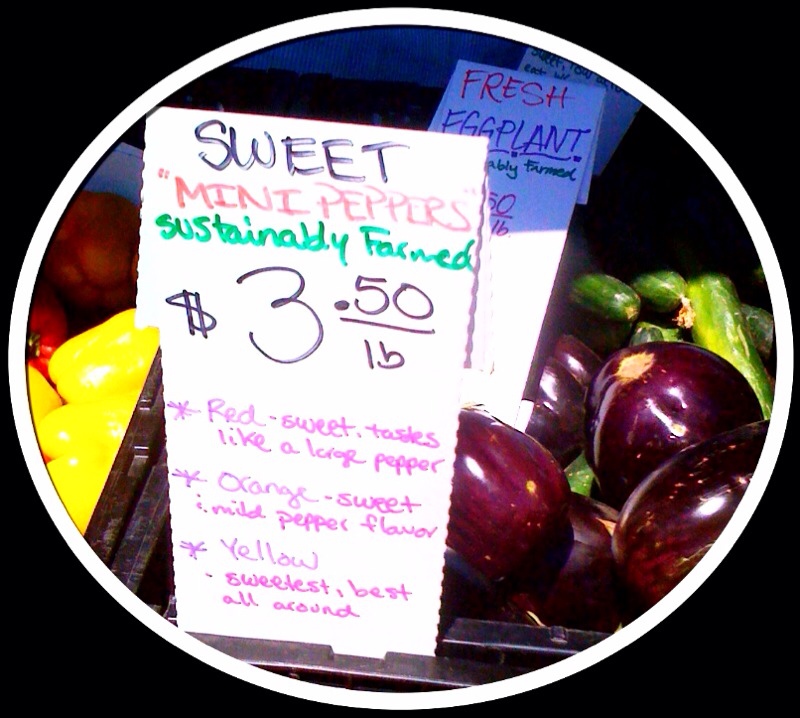 SWEET
"MINI PEPPERS"
sustainably Farmed
$3.50
lb
* Red - sweet, tastes
like a large pepper
* Orange - sweet
& mild pepper flavor
* Yellow
- sweetest, best
all around
FRESH
EGGPLANT
Farmed
50
lb